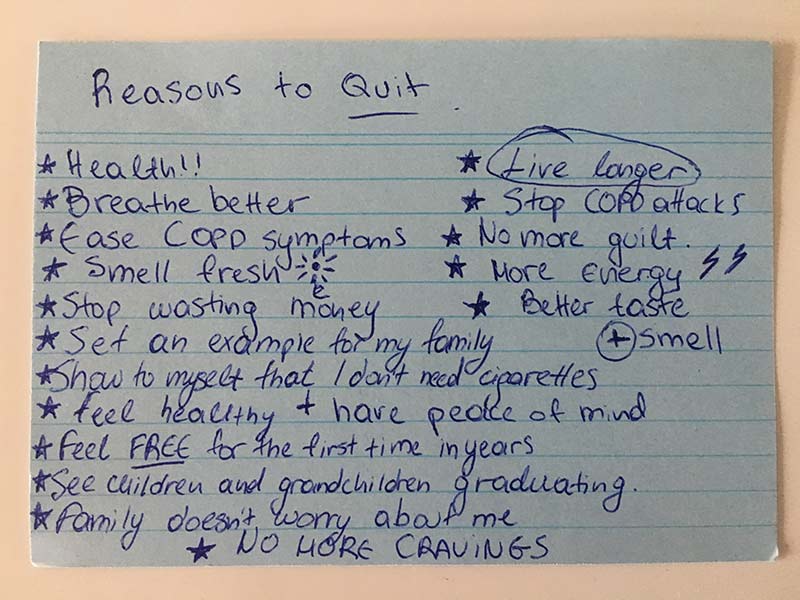 Reasons to Quit
★ Health!!
★ Breathe better
★ Ease COPD symptoms
★ Smell fresh
★ Stop wasting money
★ Set an example for my family
★ Show to myself that I don't need cigarettes
★ feel healthy + have peace of mind
★ Feel FREE for the first time in years
★ See children and grandchildren graduating.
★ Family doesn't worry about me
★ NO MORE CRAVINGS
★ Live longer
★ Stop COPD attacks
★ No more guilt.
★ More Energy
★ Better taste
+ smell